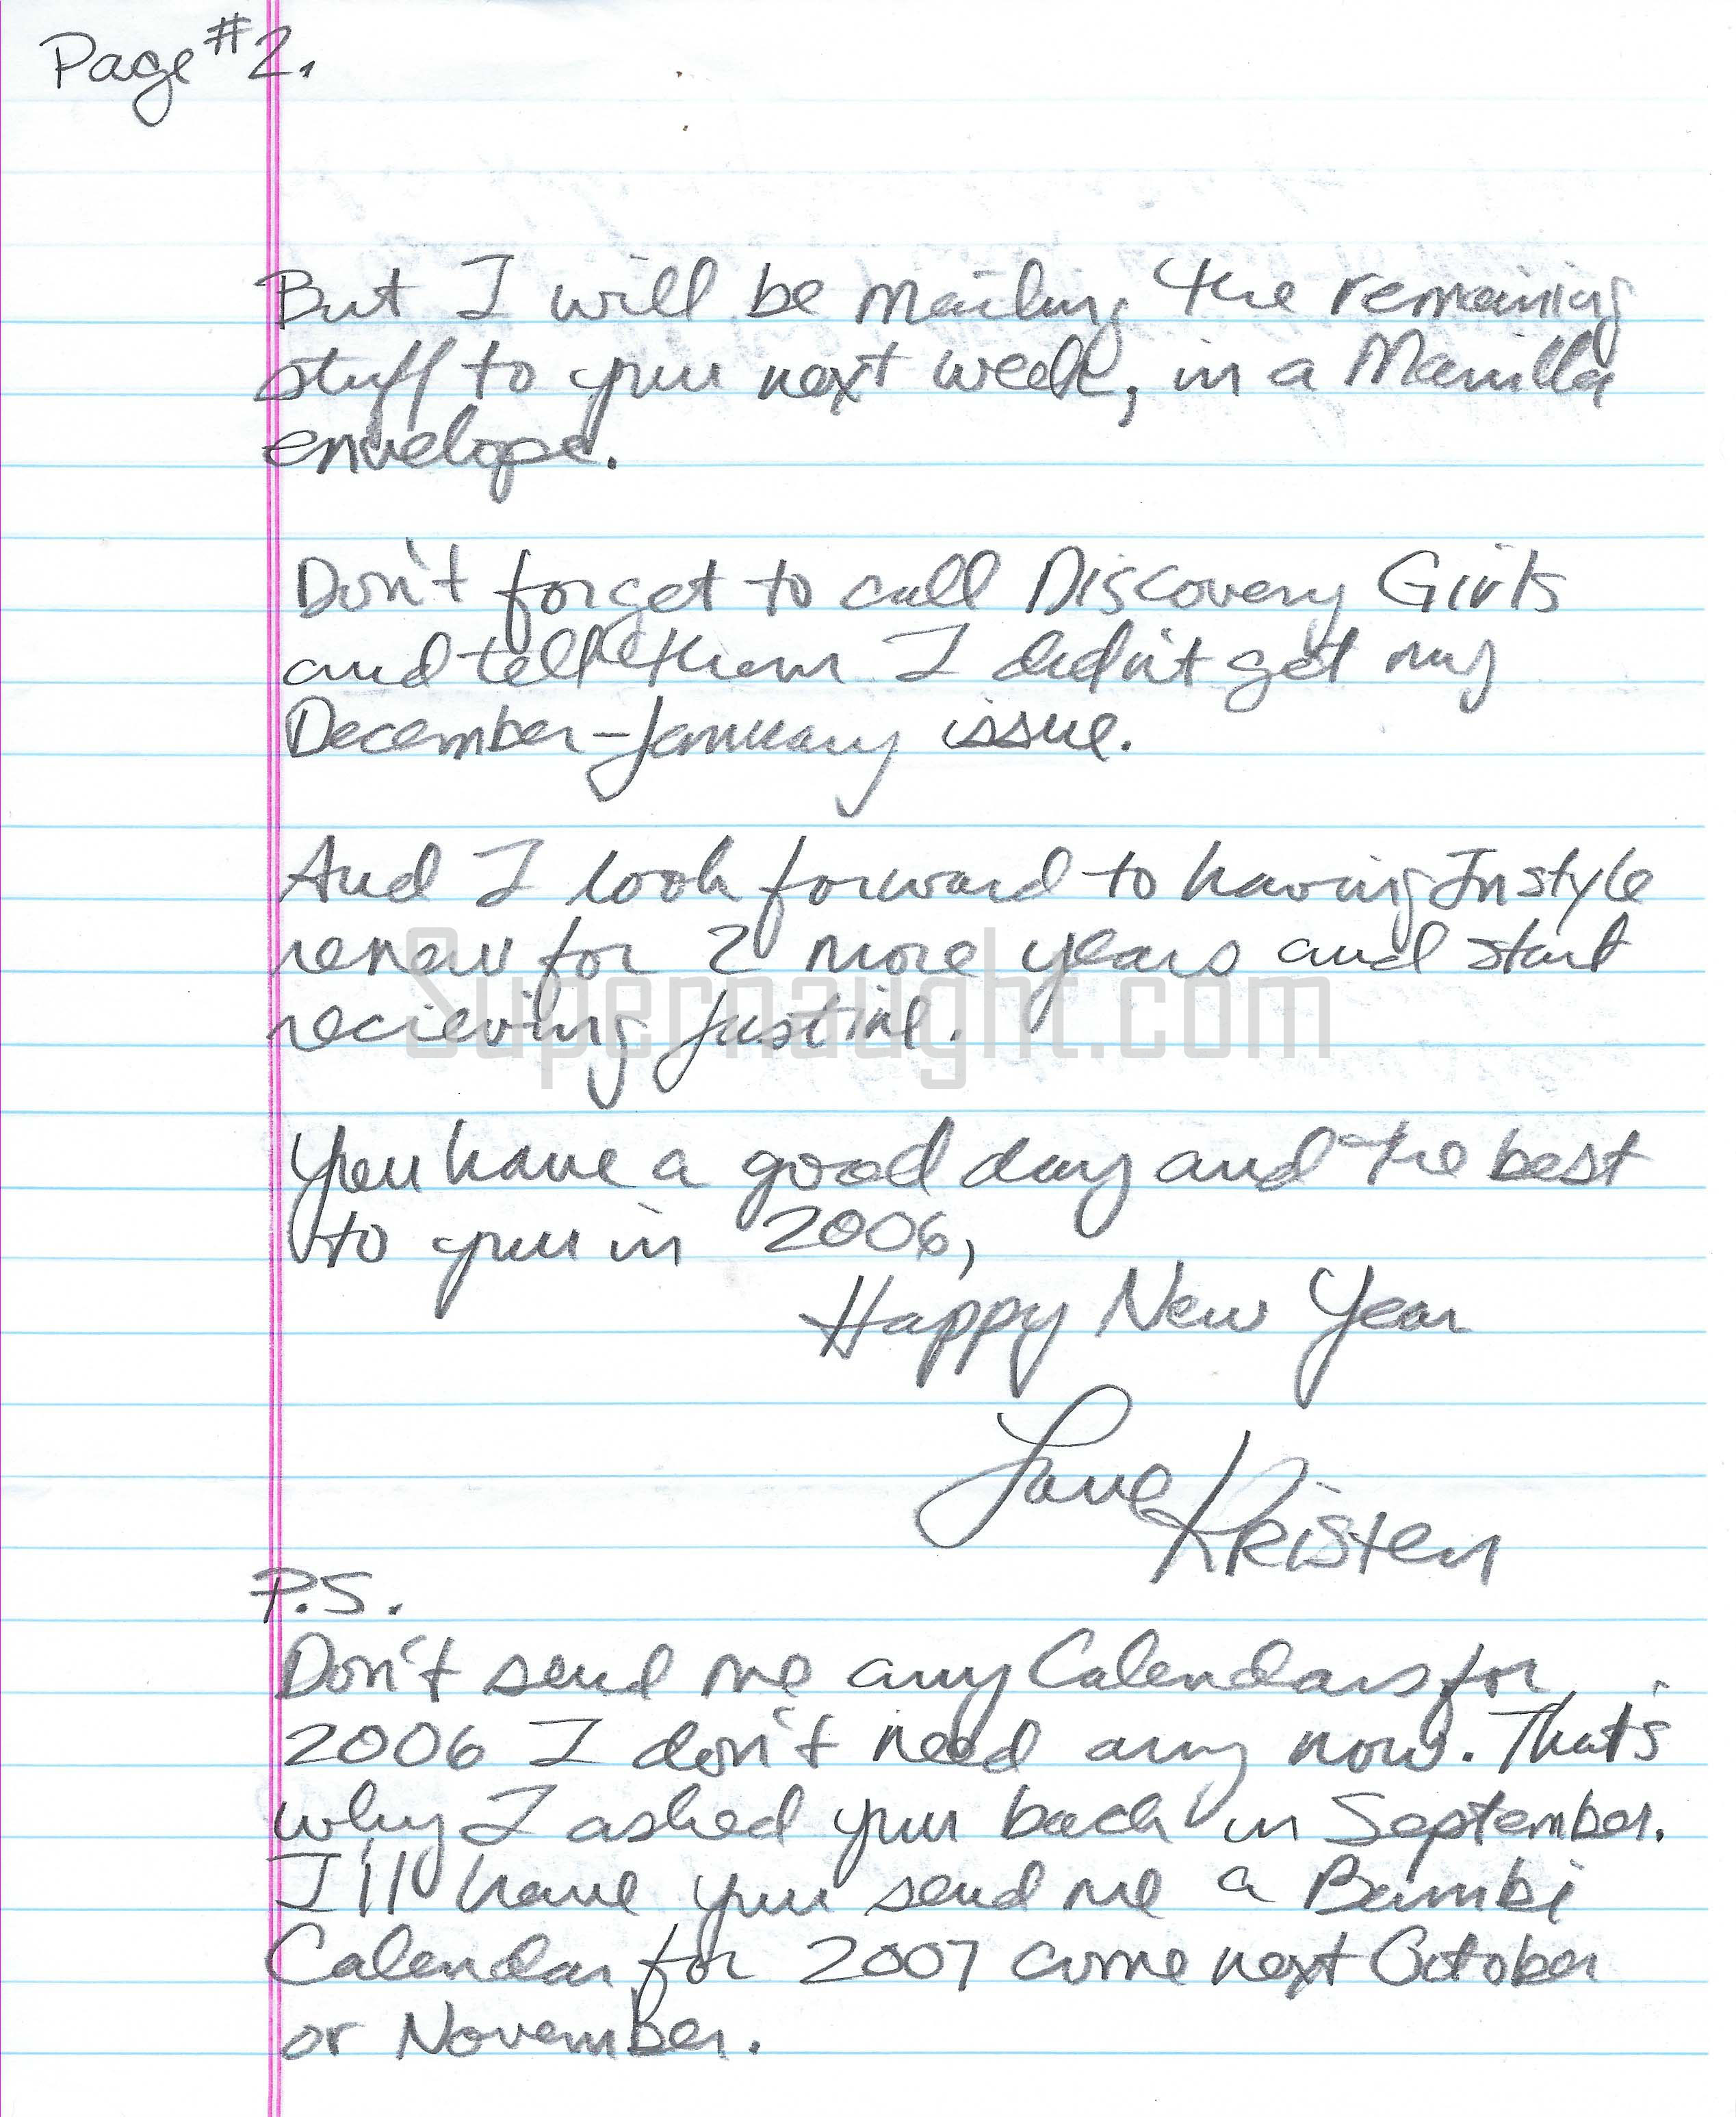 Page #2.
But I will be mailing the remaining
stuff to you next week, in a Manilla
envelope.
Don't forget to call Discovery Girls
and tell them I didn't get my
December-January issue.
And I look forward to having Instyle
renew for 2 more years and start
recieving Justine.
Supernaught.com
You have a good day and the best
to you in 2006,
Happy New Year
Love
Kristen
P.S.
Don't send me any Calendars for
2006 I don't need any now. That's
why I asked you back in September.
I'll have you send me a Bambi
Calendar for 2007 come next October
or November.